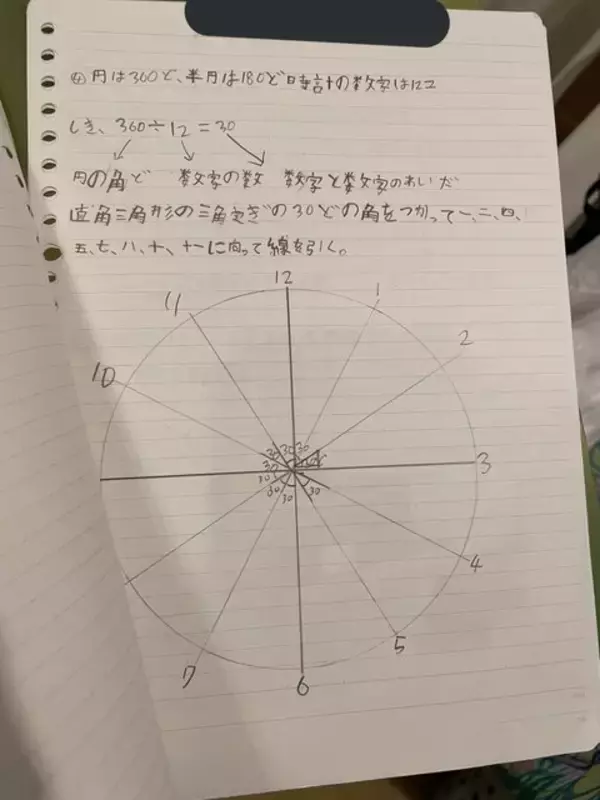 ④円は360ど、半月は180ど時計の数字は12コ
しき、360÷12=30
円の角ど 数字の数 数字と数字のあいだ
直角三角形の三角定ぎの30どの角をつかって一、二、四、
五、七、八、十、十一に向って線を引く。
12
11
1
10
2
30 30 30
30
3
30
30 30 30
4
5
7
6